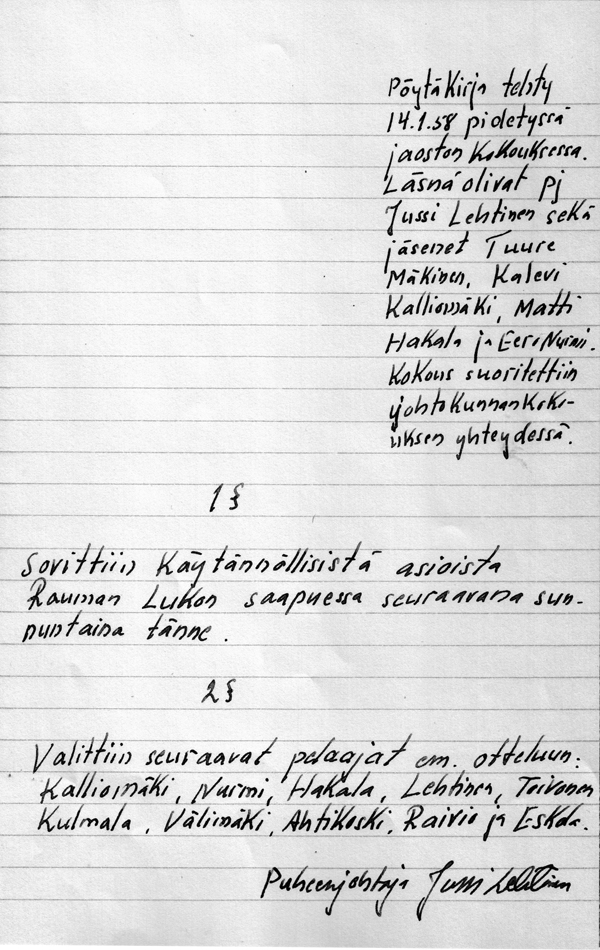 Pöytäkirja tehty
14.1.58 pidetyssä
jaoston kokouksessa.
Läsnä olivat pj
Jussi Lehtinen sekä
jäsenet Tuure
Mäkinen, Kalevi
Kalliomäki, Matti
Hakala ja Eero Nurmi.
Kokous suoritettiin
johtokunnan koko-
uksen yhteydessä.
1 §
Sovittiin käytännöllisistä asioista
Rauman Lukon saapuessa seuraavana sun-
nuntaina tänne.
2 §
Valittiin seuraavat pelaajat em. otteluun:
Kalliomäki, Nurmi, Hakala, Lehtinen, Toivonen
Kulmala, Välimäki, Ahtikoski, Raivio ja Eskola.
Puheenjohtaja Jussi Lehtinen